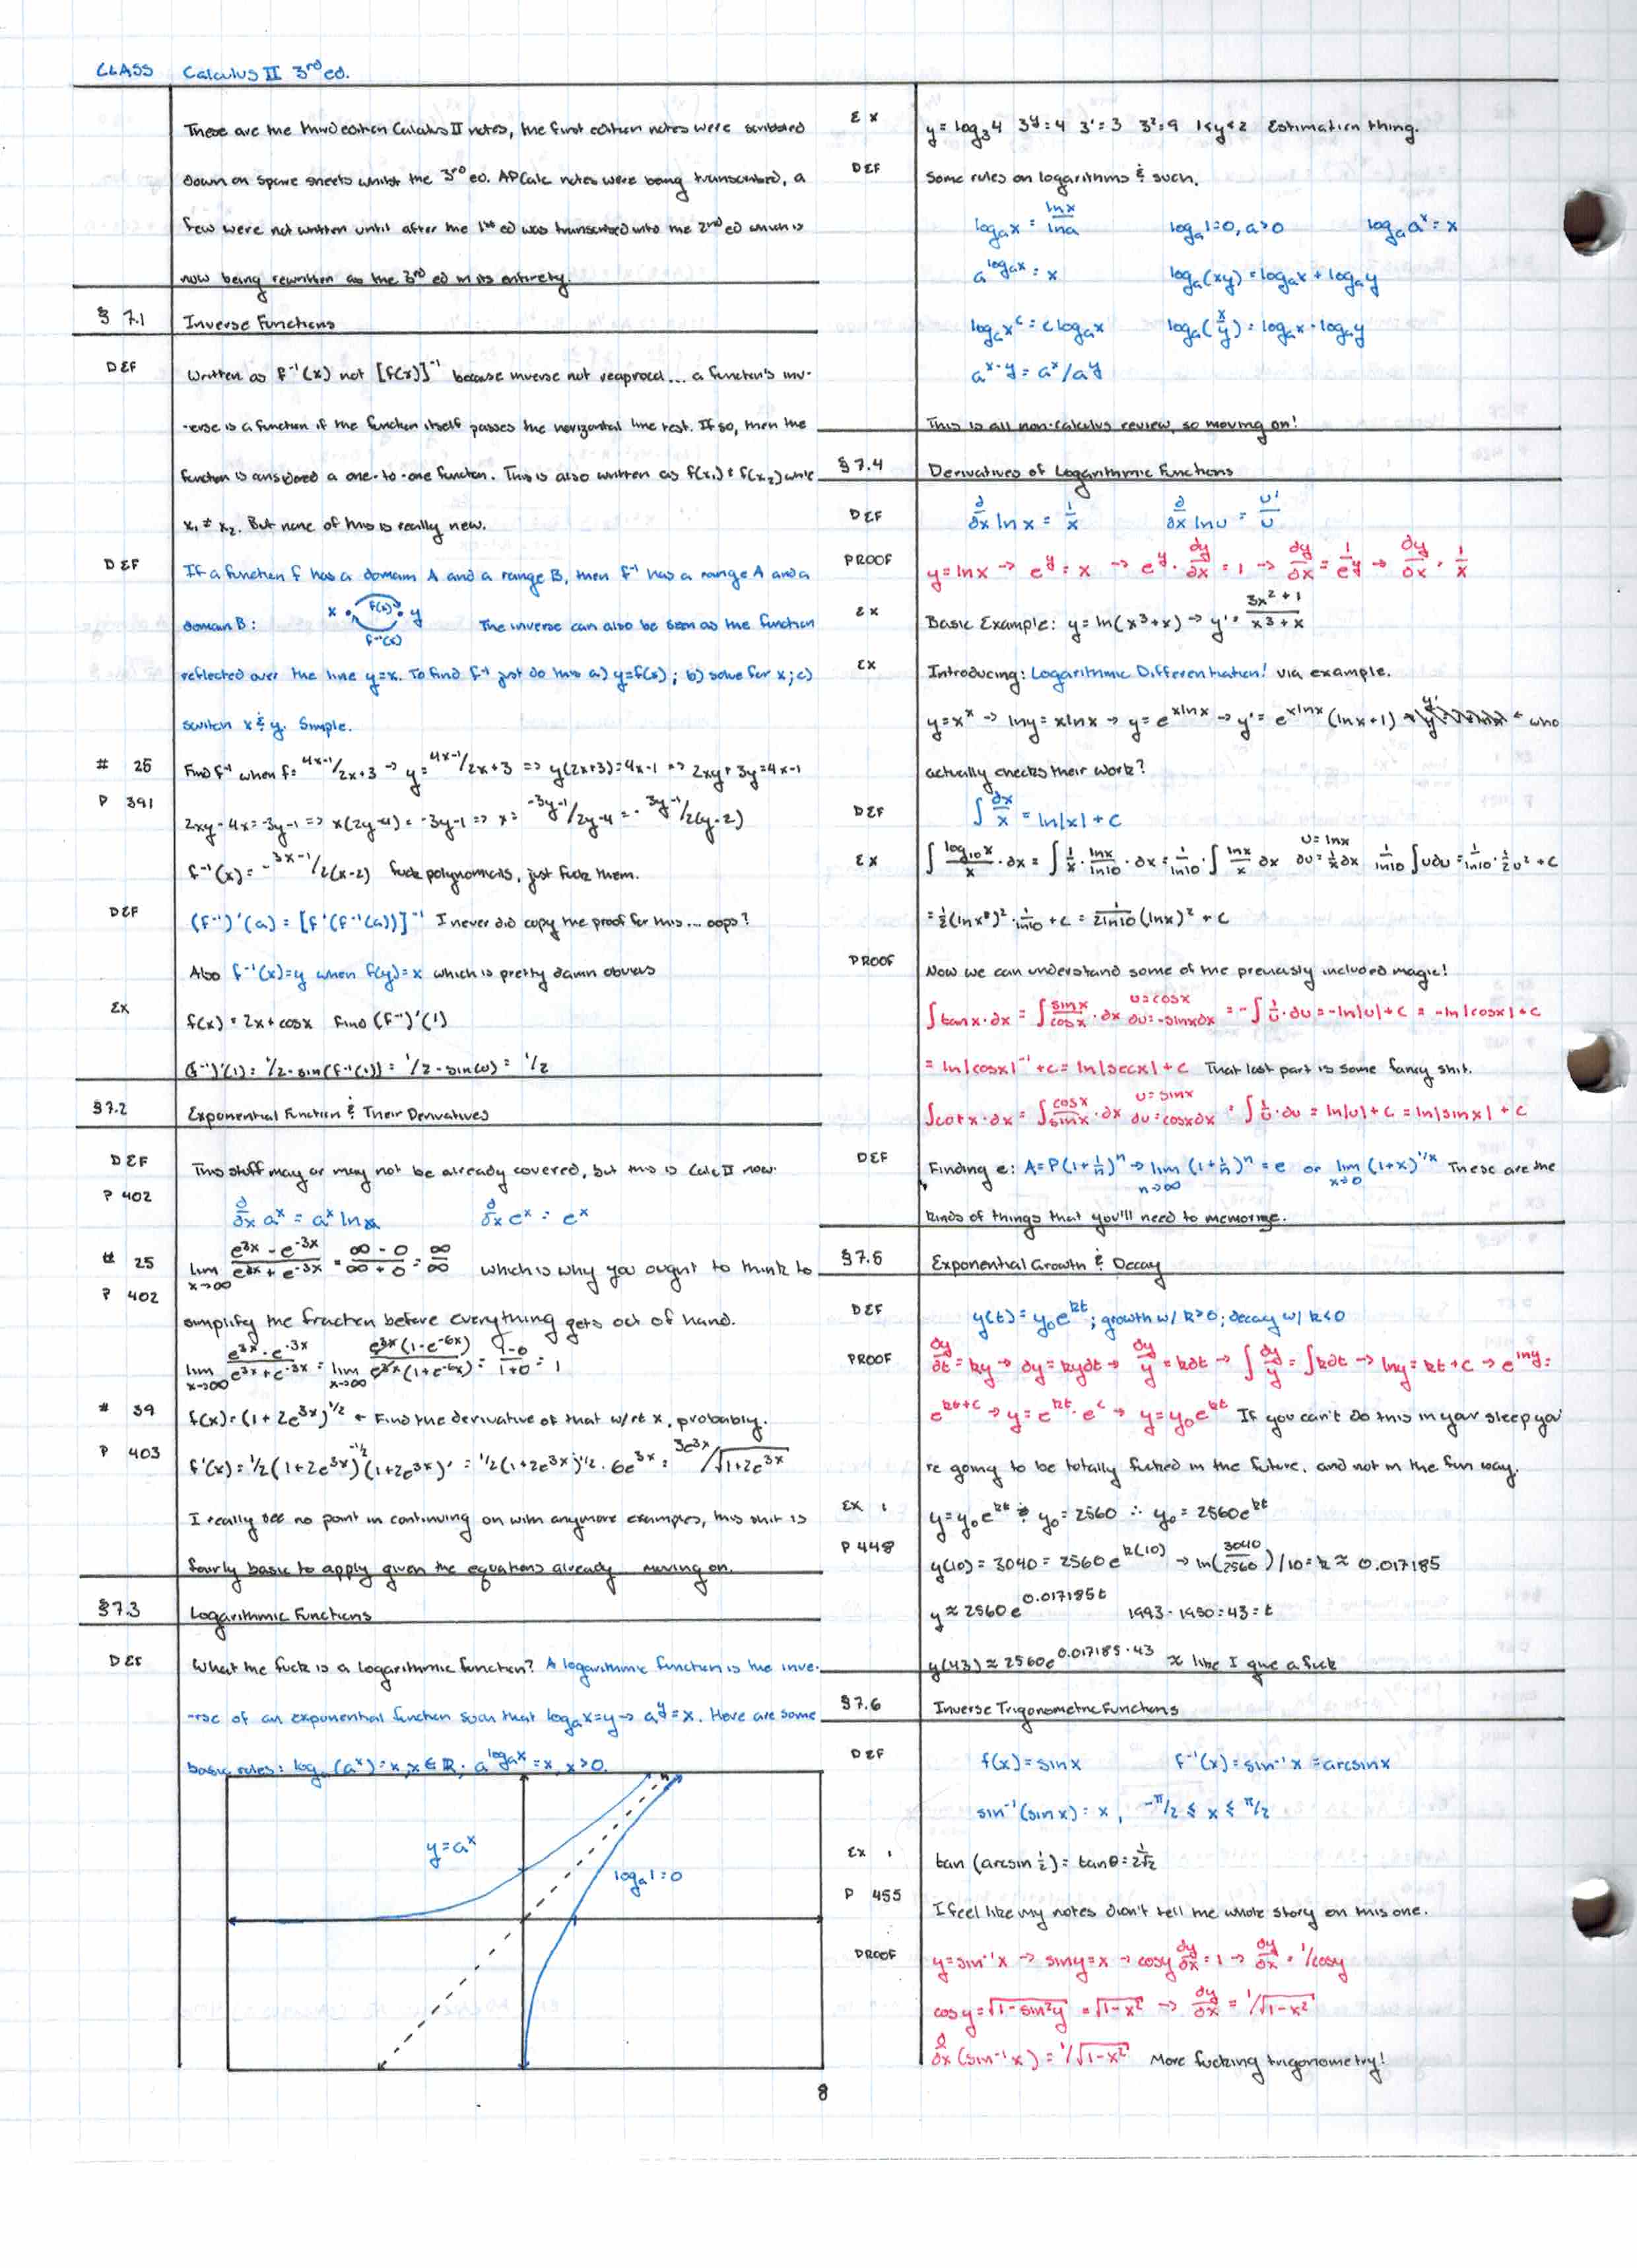 CLASS Calculus II 3rd ed.
These are the third edition Calculus II notes, the first edition notes were scribbled
down on spare sheets whilst the 3rd ed. AP Calc notes were being transcribed, a
few were not written until after the 1st ed was transcribed into the 2nd ed which is
now being rewritten as the 3rd ed in its entirety.
§ 7.1 Inverse Functions
DEF Written as f⁻¹(x) not [f(x)]⁻¹ because inverse not reciprocal... a function's inv-
-erse is a function if the function itself passes the horizontal line test. If so, then the
function is considered a one-to-one function. This is also written as f(x₁) ≠ f(x₂) while
x₁ ≠ x₂. But none of this is really new.
DEF If a function f has a domain A and a range B, then f⁻¹ has a range A and a
domain B: x f(x) y f⁻¹(x) The inverse can also be seen as the function
reflected over the line y=x. To find f⁻¹ just do this a) y=f(x); b) solve for x; c)
switch x & y. Simple.
# 25 Find f⁻¹ when f= 4x-1/2x+3 → y= 4x-1/2x+3 => y(2x+3)=4x-1 => 2xy+3y=4x-1
P 391 2xy-4x=-3y-1 => x(2y-4)=-3y-1 => x= -3y-1/2y-4 = - 3y-1/2(y-2)
f⁻¹(x)= - 3x-1/2(x-2) fuck polynomials, just fuck them.
DEF (f⁻¹)'(a) = [f'(f⁻¹(a))]⁻¹ I never did copy the proof for this... oops?
Also f⁻¹(x)=y when f(y)=x which is pretty damn obvious
Ex f(x)=2x+cosx Find (f⁻¹)'(1)
(f⁻¹)'(1)= 1/2-sin(f⁻¹(1)) = 1/2-sin(0) = 1/2
§7.2 Exponential Function & Their Derivatives
DEF This stuff may or may not be already covered, but this is Calc II now:
P 402 ∂/∂x aˣ = aˣ ln a ∂/∂x eˣ = eˣ
# 25 lim x→∞ e³ˣ - e⁻³ˣ / e³ˣ + e⁻³ˣ = ∞-0/∞+0 = ∞/∞ which is why you ought to think to
P 402 simplify the fraction before everything gets out of hand.
lim x→∞ e³ˣ-e⁻³ˣ / e³ˣ+e⁻³ˣ = lim x→∞ e³ˣ(1-e⁻⁶ˣ) / e³ˣ(1+e⁻⁶ˣ) = 1-0/1+0 = 1
# 39 f(x)=(1+2e³ˣ)^1/2 ← Find the derivative of that w/rt x, probably.
P 403 f'(x)=1/2(1+2e³ˣ)^-1/2 (1+2e³ˣ)' = 1/2(1+2e³ˣ)^-1/2 · 6e³ˣ = 3e³ˣ/√1+2e³ˣ
I really see no point in continuing on with anymore examples, this shit is
fairly basic to apply given the equations already... moving on.
§7.3 Logarithmic Functions
DEF What the fuck is a logarithmic function? A logarithmic function is the inve-
-rse of an exponential function such that logₐx=y → aʸ=x. Here are some
basic rules: logₐ(aˣ)=x, x∈ℝ; a^logₐx = x, x>0.
y=aˣ
logₐ1=0
Ex y=log₃4 3ʸ=4 3¹=3 3²=9 1<y<2 Estimation thing.
DEF Some rules on logarithms & such.
logₐx = lnx/lna logₐ1=0, a>0 logₐaˣ=x
a^logₐx = x logₐ(xy)=logₐx+logₐy
logₐxᶜ=c logₐx logₐ(x/y)=logₐx-logₐy
aˣ⁻ʸ=aˣ/aʸ
This is all non-calculus review, so moving on!
§7.4 Derivatives of Logarithmic Functions
DEF ∂/∂x ln x = 1/x ∂/∂x lnu = u'/u
PROOF y=lnx → eʸ=x → eʸ·∂y/∂x=1 → ∂y/∂x=1/eʸ → ∂y/∂x=1/x
Ex Basic Example: y=ln(x³+x) → y'= 3x²+1/x³+x
Ex Introducing: Logarithmic Differentiation! via example.
y=xˣ → lny=xlnx → y=e^xlnx → y'=e^xlnx (lnx+1) ← who
actually checks their work?
DEF ∫∂x/x = ln|x|+C
Ex ∫log₁₀x/x·∂x = ∫1/x·lnx/ln10·∂x = 1/ln10·∫lnx/x ∂x u=lnx ∂u=1/x∂x 1/ln10∫u∂u = 1/ln10·1/2u²+C
=1/2(lnx)²·1/ln10+C = 1/2ln10 (lnx)²+C
PROOF Now we can understand some of the previously included magic!
∫tanx·∂x = ∫sinx/cosx·∂x u=cosx ∂u=-sinx∂x = -∫1/u·∂u=-ln|u|+C = -ln|cosx|+C
= ln|cosx|⁻¹+C = ln|secx|+C That last part is some fancy shit.
∫cotx·∂x = ∫cosx/sinx·∂x u=sinx ∂u=cosx∂x = ∫1/u·∂u = ln|u|+C = ln|sinx|+C
DEF Finding e: A=P(1+1/n)ⁿ → lim n→∞ (1+1/n)ⁿ = e or lim x→0 (1+x)^1/x These are the
kinds of things that you'll need to memorize.
§7.5 Exponential Growth & Decay
DEF y(t)=y₀e^kt; growth w/ k>0; decay w/ k<0
PROOF ∂y/∂t=ky → ∂y=ky∂t → ∂y/y=k∂t → ∫∂y/y=∫k∂t → lny=kt+C → e^lny=
e^kt+C → y=e^kt·e^C → y=y₀e^kt If you can't do this in your sleep you'
re going to be totally fucked in the future, and not in the fun way.
Ex 1 y=y₀e^kt & y₀=2560 ∴ y₀=2560e^kt
P 448 y(10)=3040=2560e^k(10) → ln(3040/2560)/10=k≈0.017185
y≈2560e^0.017185t 1993-1950=43=t
y(43)≈2560e^0.017185·43 ≈ like I give a fuck
§7.6 Inverse Trigonometric Functions
DEF f(x)=sinx f⁻¹(x)=sin⁻¹x=arcsinx
sin⁻¹(sinx)=x, -π/2 ≤ x ≤ π/2
Ex 1 tan(arcsin 1/2)=tanθ=
P 455 I feel like my notes didn't tell the whole story on this one.
PROOF y=sin⁻¹x → siny=x → cosy ∂y/∂x=1 → ∂y/∂x=1/cosy
cosy=√1-sin²y=√1-x² → ∂y/∂x=1/√1-x²
∂/∂x(sin⁻¹x)=1/√1-x² More fucking trigonometry!
8